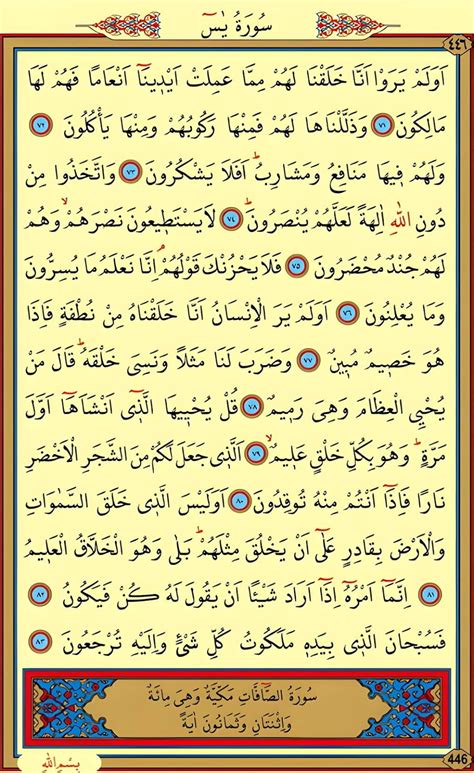 سُورَةُ يٰسٓ
٤٤٦
اَوَلَمْ يَرَوْا اَنَّا خَلَقْنَا لَهُمْ مِمَّا عَمِلَتْ اَيْدٖينَٓا اَنْعَامًا فَهُمْ لَهَا
مَالِكُونَ ﴿٧١﴾ وَذَلَّلْنَاهَا لَهُمْ فَمِنْهَا رَكُوبُهُمْ وَمِنْهَا يَأْكُلُونَ ﴿٧٢﴾
وَلَهُمْ فٖيهَا مَنَافِعُ وَمَشَارِبُۜ اَفَلَا يَشْكُرُونَ ﴿٧٣﴾ وَاتَّخَذُوا مِنْ
دُونِ اللّٰهِ اٰلِهَةً لَعَلَّهُمْ يُنْصَرُونَۜ ﴿٧٤﴾ لَا يَسْتَطٖيعُونَ نَصْرَهُمْۙ وَهُمْ
لَهُمْ جُنْدٌ مُحْضَرُونَ ﴿٧٥﴾ فَلَا يَحْزُنْكَ قَوْلُهُمْۢ اِنَّا نَعْلَمُ مَا يُسِرُّونَ
وَمَا يُعْلِنُونَ ﴿٧٦﴾ اَوَلَمْ يَرَ الْاِنْسَانُ اَنَّا خَلَقْنَاهُ مِنْ نُطْفَةٍ فَاِذَا
هُوَ خَصٖيمٌ مُبٖينٌ ﴿٧٧﴾ وَضَرَبَ لَنَا مَثَلًا وَنَسِيَ خَلْقَهُۜ قَالَ مَنْ
يُحْيِي الْعِظَامَ وَهِيَ رَمٖيمٌ ﴿٧٨﴾ قُلْ يُحْيٖيهَا الَّذٖٓي اَنْشَاَهَٓا اَوَّلَ
مَرَّةٍۜ وَهُوَ بِكُلِّ خَلْقٍ عَلٖيمٌۙ ﴿٧٩﴾ اَلَّذٖي جَعَلَ لَكُمْ مِنَ الشَّجَرِ الْاَخْضَرِ
نَارًا فَاِذَٓا اَنْتُمْ مِنْهُ تُوقِدُونَ ﴿٨٠﴾ اَوَلَيْسَ الَّذٖي خَلَقَ السَّمٰوَاتِ
وَالْاَرْضَ بِقَادِرٍ عَلٰٓى اَنْ يَخْلُقَ مِثْلَهُمْۜ بَلٰى وَهُوَ الْخَلَّاقُ الْعَلٖيمُ
﴿٨١﴾ اِنَّمَٓا اَمْرُهُٓ اِذَٓا اَرَادَ شَيْـًٔا اَنْ يَقُولَ لَهُ كُنْ فَيَكُونُ ﴿٨٢﴾
فَسُبْحَانَ الَّذٖي بِيَدِهٖ مَلَكُوتُ كُلِّ شَيْءٍ وَاِلَيْهِ تُرْجَعُونَ ﴿٨٣﴾
سُورَةُ الصَّٓافَّاتِ مَكِّيَّةٌ وَهِيَ مِائَةٌ
وَاِثْنَتَانِ وَثَمَانُونَ اٰيَةً
بِسْمِ اللّٰهِ
446